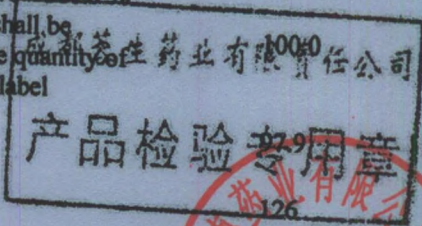 shall be
e quantity of
label
100.0
生药业有限责任公司
产品检验专用章
97.9
126
药业有限公